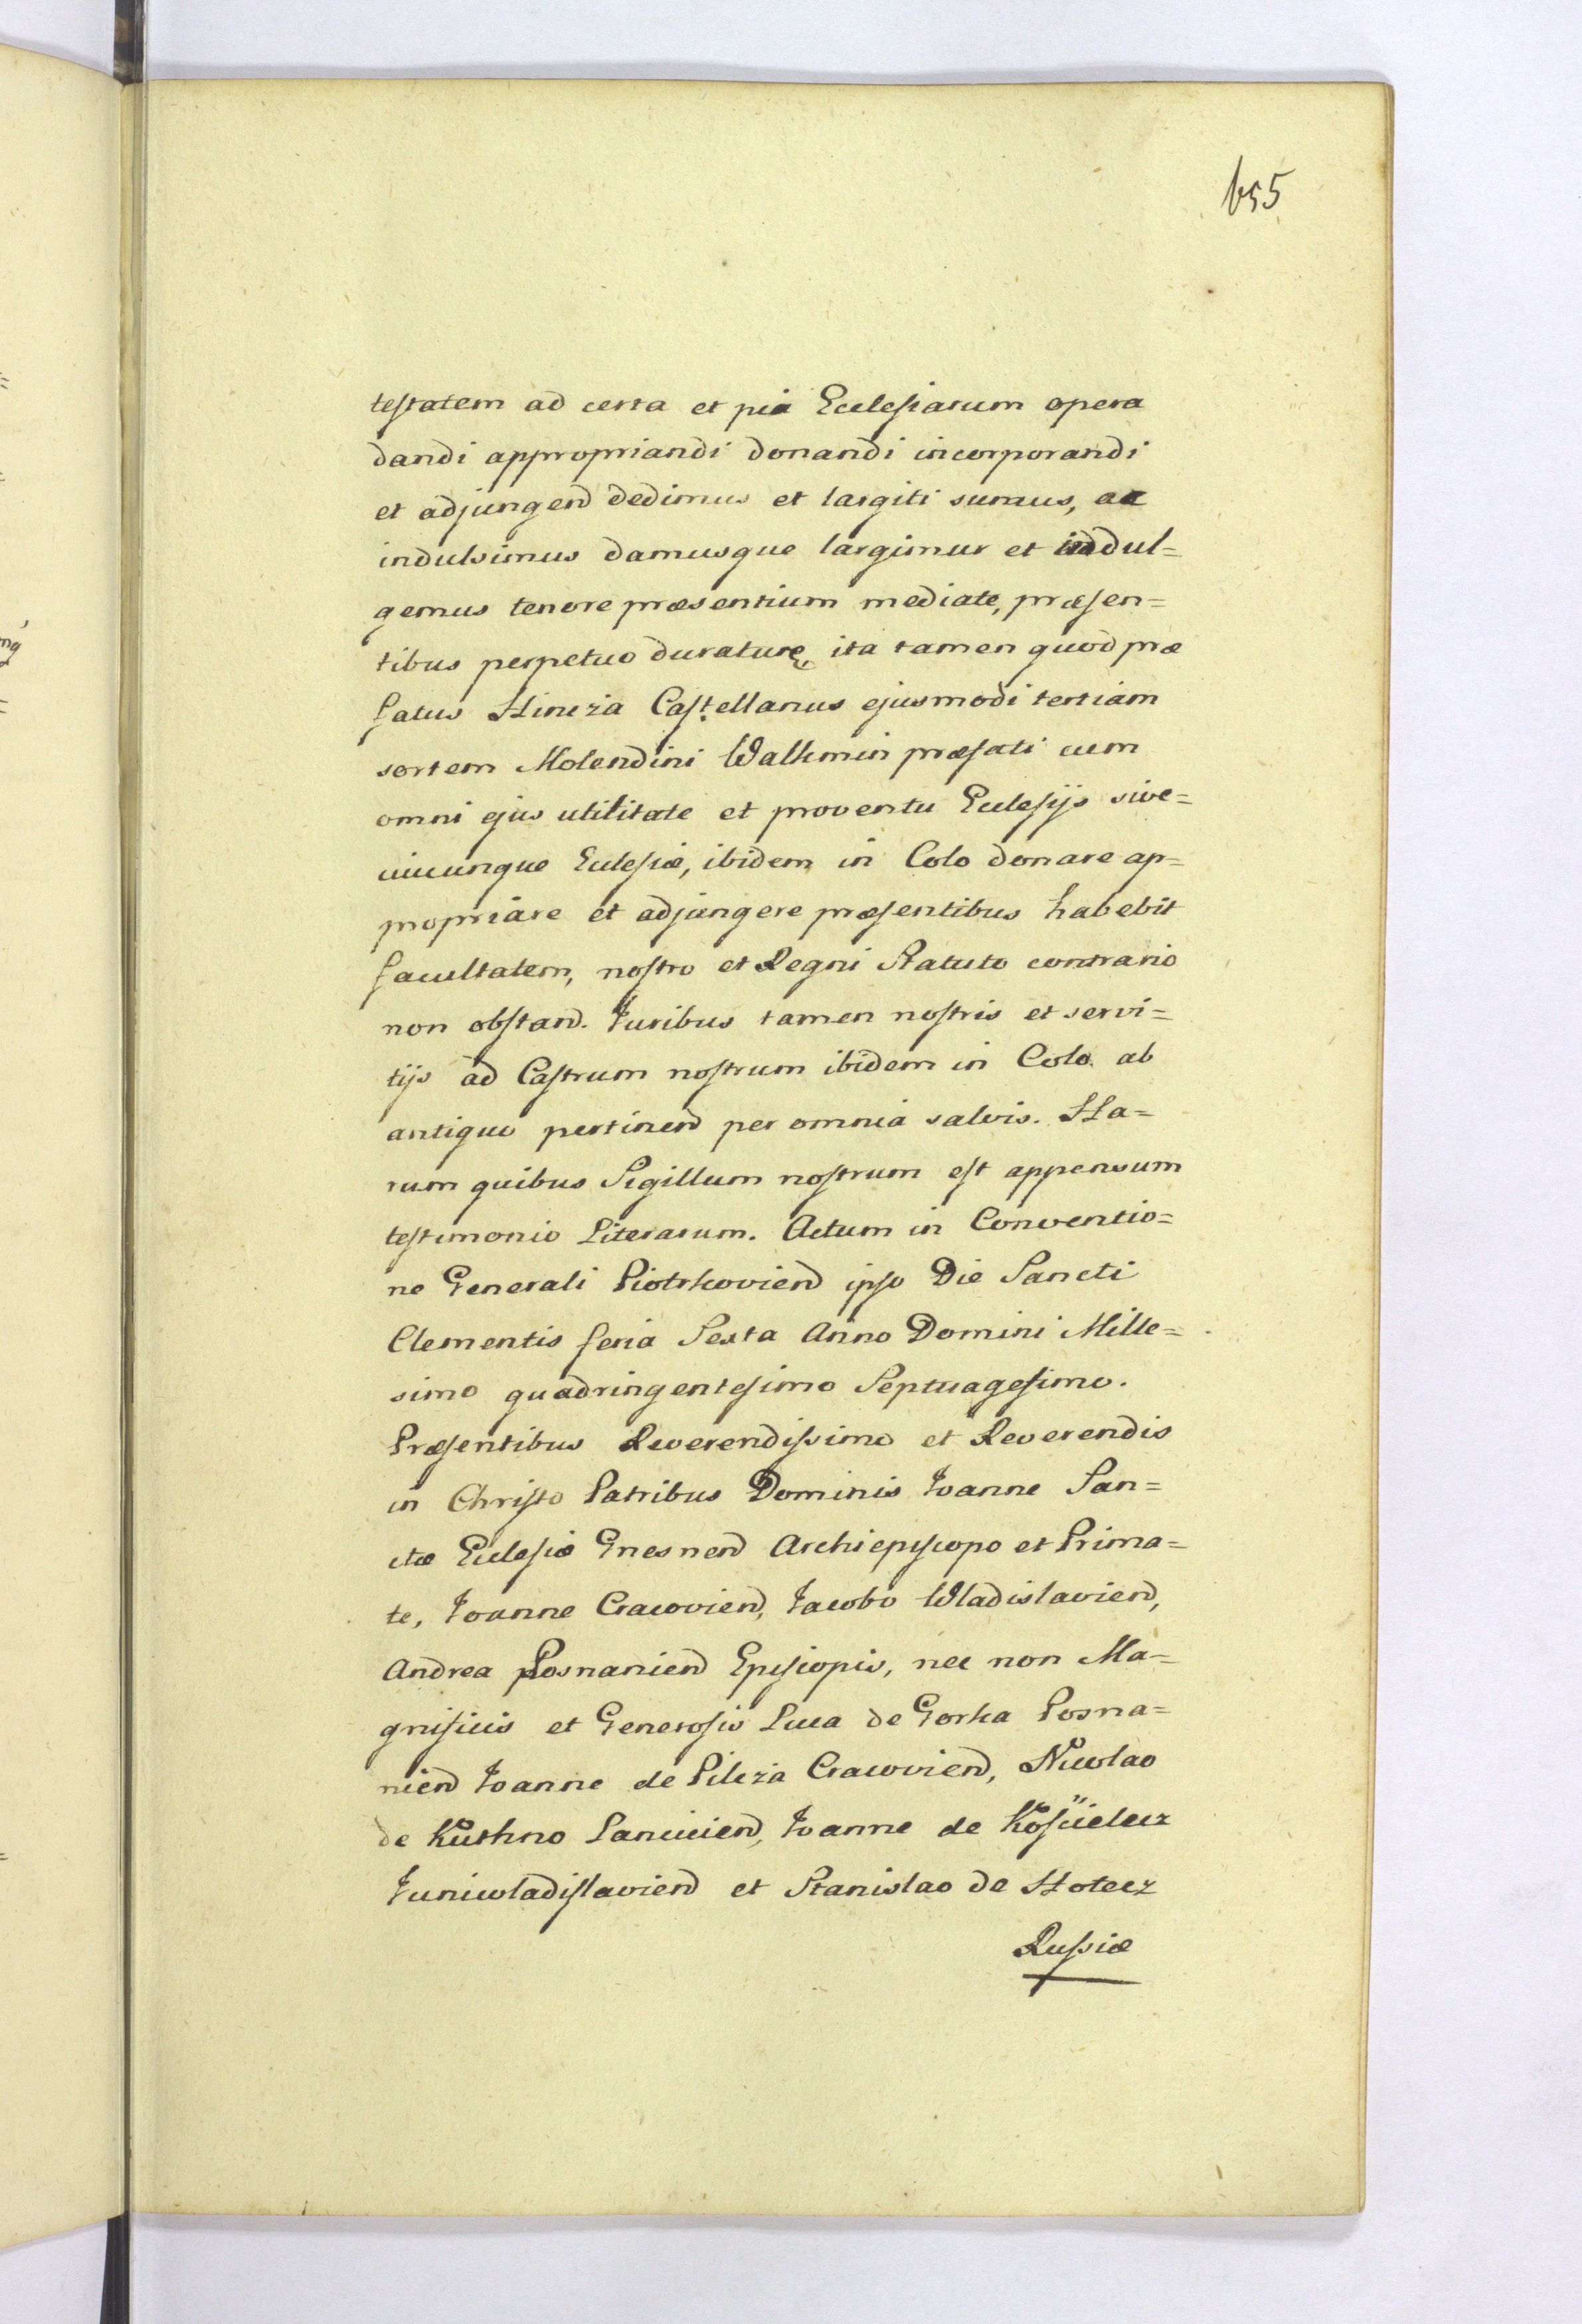 655
testatem ad certa et pia Ecclesiarum opera
dandi appropriandi donandi incorporandi
et adjungend dedimus et largiti sumus, ac
indulsimus damusque largimur et indul=
gemus tenore præsentium mediate, præsen=
tibus perpetuo duraturę, ita tamen quod præ
fatus Hincza Castellanus ejusmodi tertiam
sortem Molendini Walkmin præfati cum
omni ejus utilitate et proventu Ecclesijs sive=
cuicunque Eclesiæ, ibidem in Colo donare ap=
propriare et adjungere præsentibus habebit
facultatem, nostro et Regni Statuto contrario
non obstand. Juribus tamen nostris et servi=
tijs ad Castrum nostrum ibidem in Colo ab
antiquo pertinend per omnia salvis. Ha=
rum quibus Sigillum nostrum est appensum
testimonio Literarum. Actum in Conventio=
ne Generali Piotrkoviend ipso Die Sancti
Clementis feria Sexta Anno Domini Mille=
simo quadringentesimo Septuagesimo.
Præsentibus Reverendissimo et Reverendis
in Christo Patribus Dominis Joanne San=
ctæ Eclesiæ Gnesnend Archiepiscopo et Prima=
te, Joanne Cracoviend, Jacobo Wladislaviend,
Andrea Posnaniend Episcopis, nec non Ma=
gnificis et Generosis Luca de Gorka Posna=
niend Joanne de Pilcza Cracoviend, Nicolao
de Kuthno Lanciciend, Joanne de Kościelecz
Juniwladislaviend et Stanislao de Hotecz
Russiæ